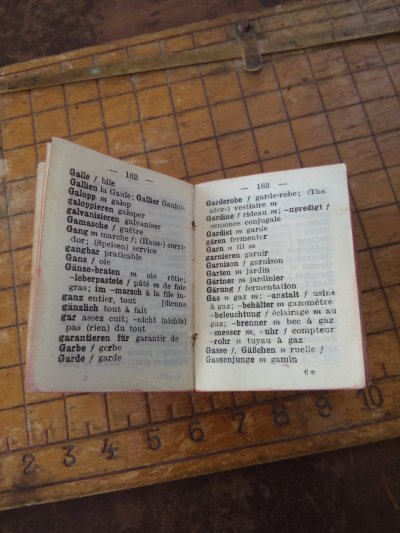 — 162 —
Galle f bile
Gallien la Gaule; Gallier Gaulois
Galopp m galop
galoppieren galoper
galvanisieren galvaniser
Gamasche f guêtre
Gang m marche f; (Haus-) corri-
dor; (Speisen) service
gangbar praticable
Gans f oie
Gänse-braten m oie rôtie;
-leberpastete f pâté m de foie
gras; im -marsch à la file in-
ganz entier, tout [dienne
gänzlich tout à fait
gar assez cuit; -nicht (nichts)
pas (rien) du tout
garantieren für garantir de
Garbe f gerbe
Garde f garde
— 163 —
Garderobe f garde-robe; (The
ater-) vestiaire m
Gardine f rideau m; -npredigt f
semonce conjugale
Gardist m garde
gären fermenter
Garn n fil m
garnieren garnir
Garnison f garnison
Garten m jardin
Gärtner m jardinier
Gärung f fermentation
Gas n gaz m; -anstalt f usine
à gaz; -behälter m gazomètre
-beleuchtung f éclairage m au
gaz; -brenner m bec à gaz
-messer m, -uhr f compteur
-rohr n tuyau à gaz
Gasse f, Gäßchen n ruelle f
Gassenjunge m gamin
6*
2 3 4 5 6 7 8 9 10